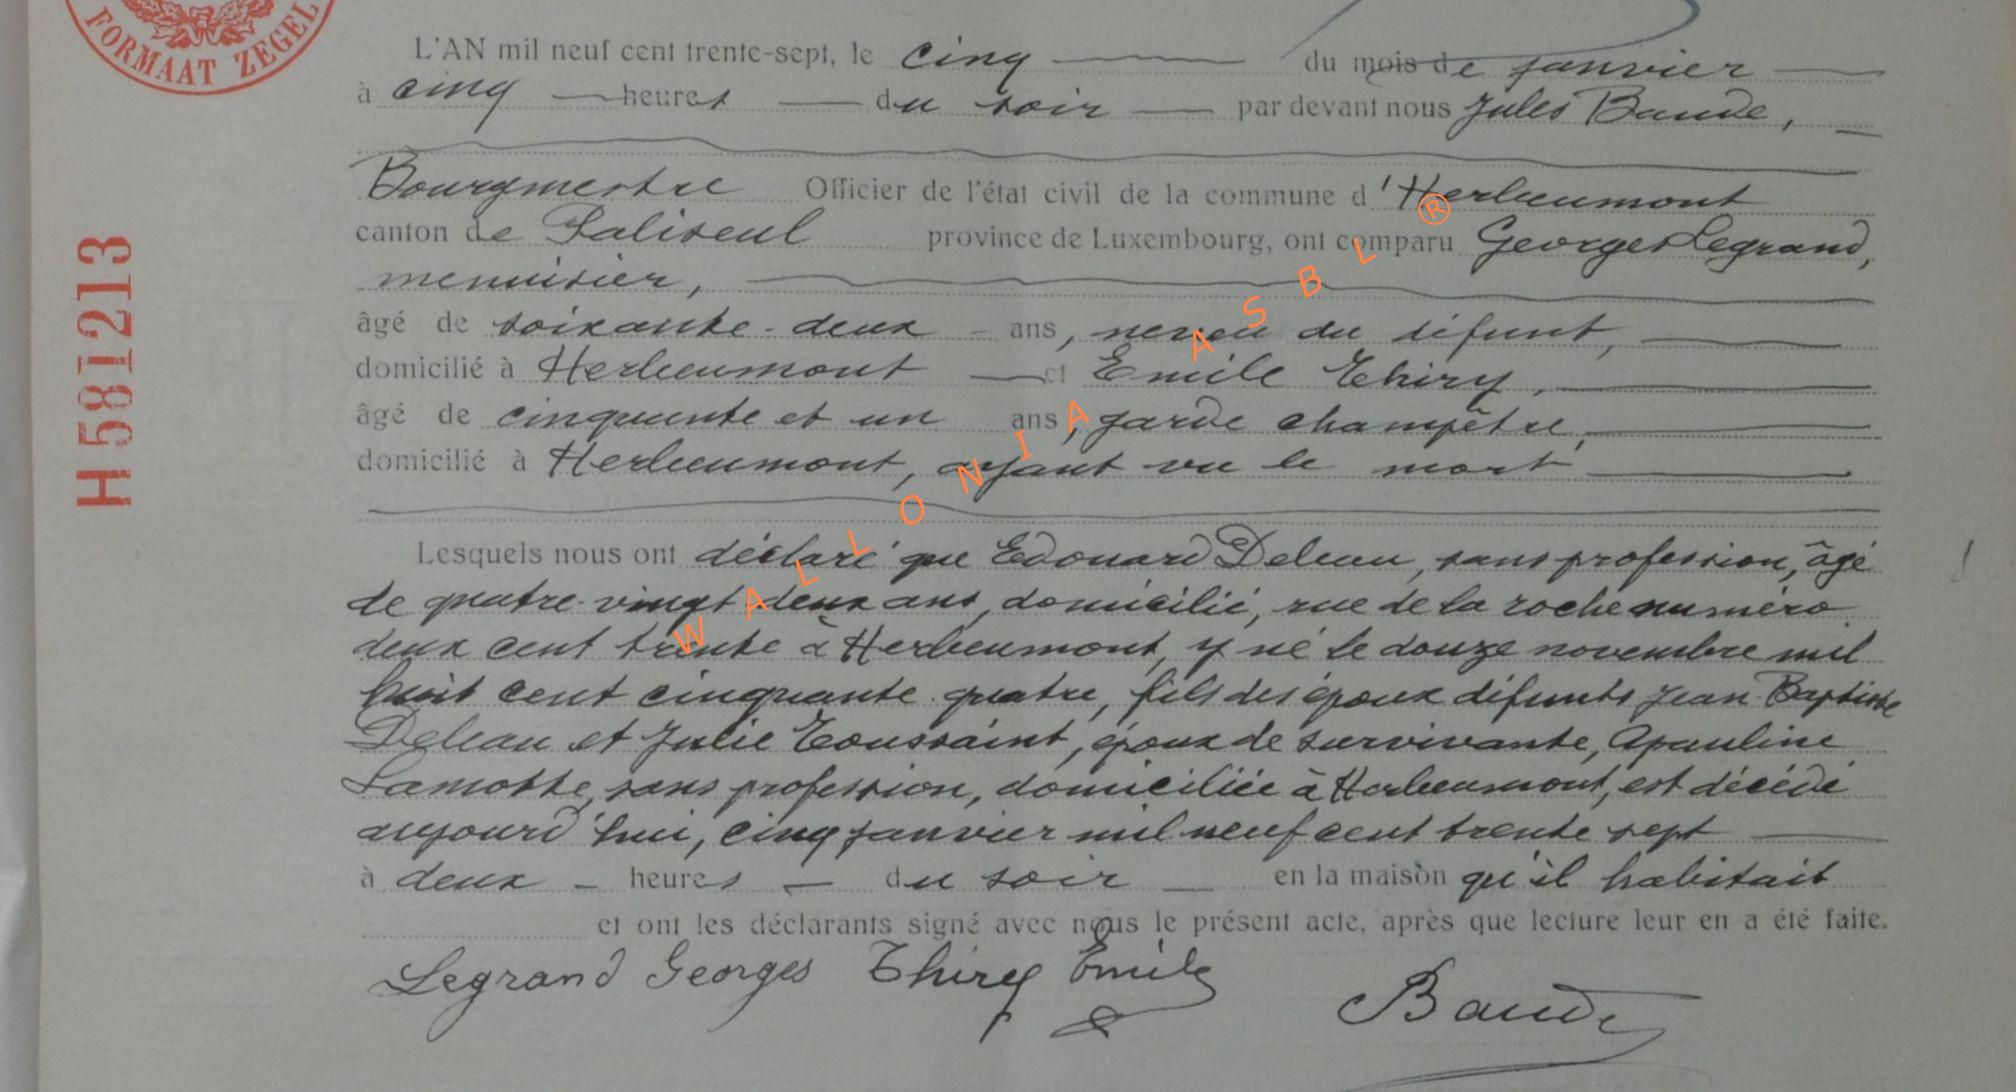 FORMAAT ZEGEL
H581213
L'AN mil neuf cent trente-sept, le cinq du mois de janvier
à cinq heures du soir par devant nous Jules Baude,
Bourgmestre Officier de l'état civil de la commune d'Herbeumont
canton de Paliseul province de Luxembourg, ont comparu Georges Legrand,
menuisier,
âgé de soixante-deux ans, neveu du défunt,
domicilié à Herbeumont et Emile Thiry,
âgé de cinquante et un ans, garde champêtre,
domicilié à Herbeumont, ayant vu le mort
Lesquels nous ont déclaré que Edouard Deleau, sans profession, âgé
de quatre-vingt deux ans, domicilié, rue de la roche numéro
deux cent trente à Herbeumont, y né le douze novembre mil
huit cent cinquante quatre, fils des époux défunts Jean-Baptiste
Deleau et Julie Toussaint, époux de survivante, Apauline
Lamotte, sans profession, domiciliée à Herbeumont, est décédé
aujourd'hui, cinq janvier mil neuf cent trente sept
à deux heures du soir en la maison qu'il habitait
et ont les déclarants signé avec nous le présent acte, après que lecture leur en a été faite.
Legrand Georges Thiry Emile
Baude
WALLONIA ASBL ®